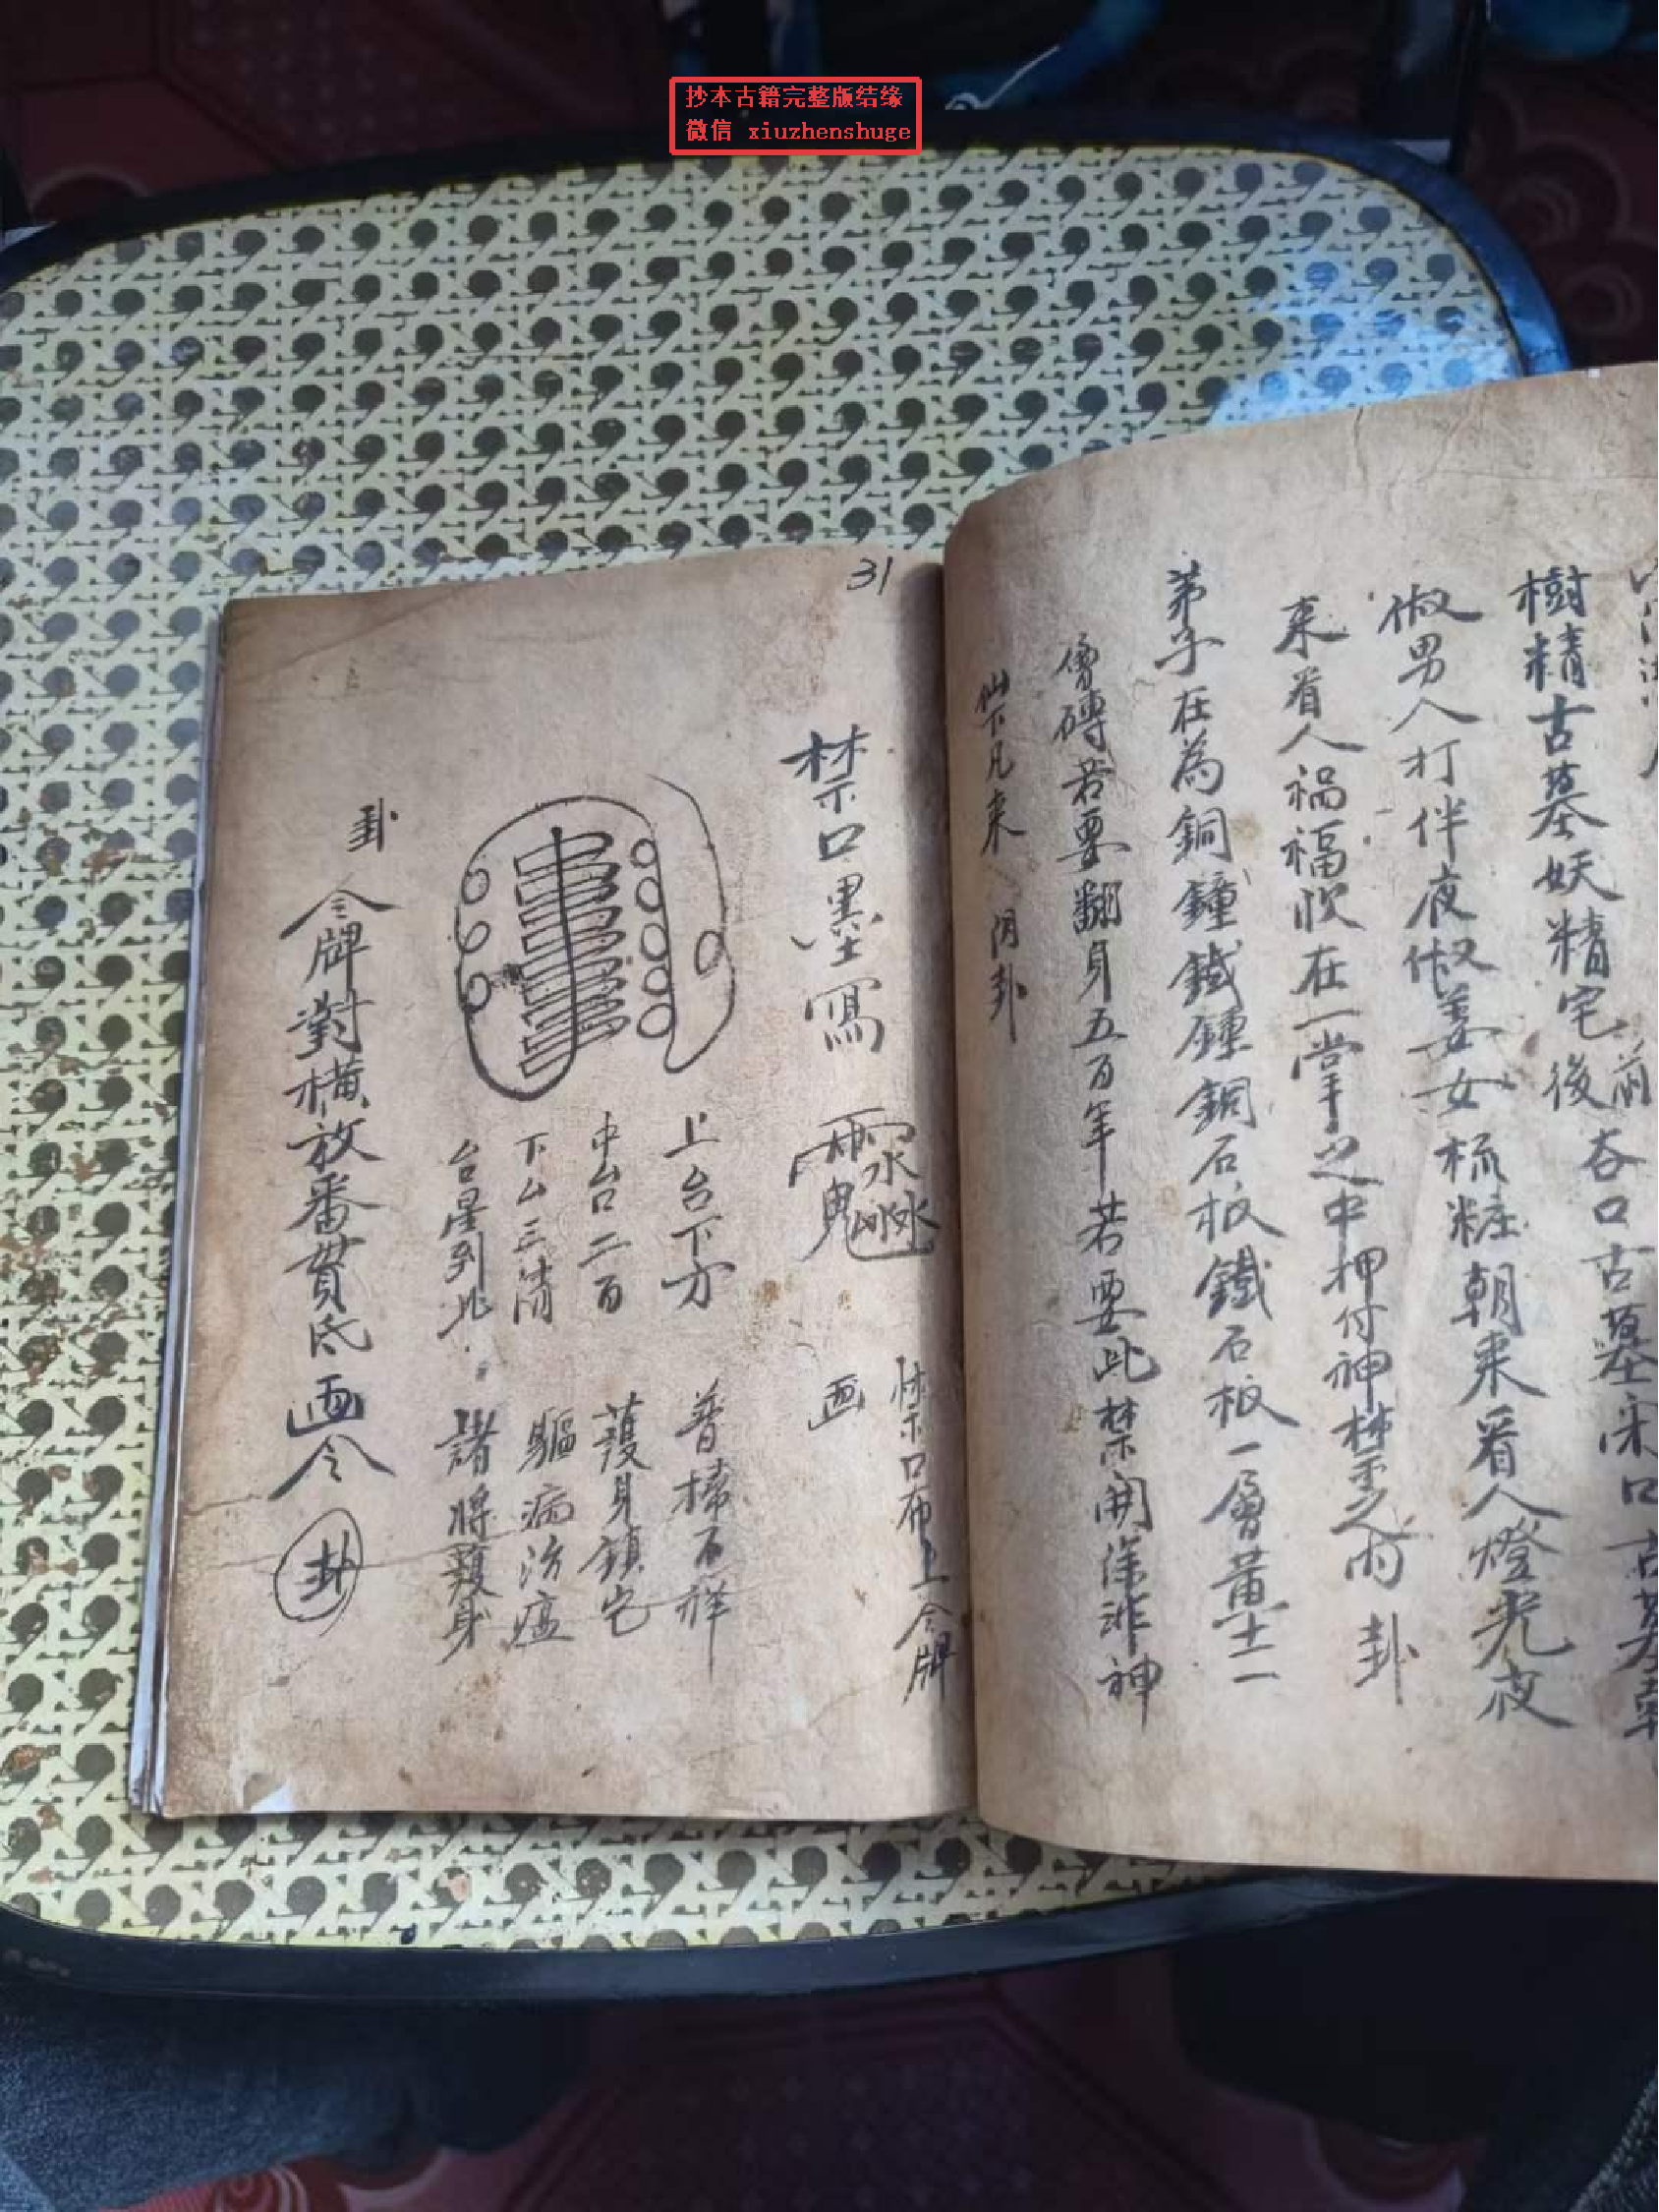 抄本古籍完整版结缘
微信 xiuzhenshuge
樹精古墓妖精宅前後吞口古墓宋口古墓
俶男人打伴夜俶姜女梳粧朝来看人燈光夜
来看人禍福恢在一掌之中押付神禁之内 卦
弟子在為銅鐘鐵鐘銅石板鐵石板一層黄土一
層磚若要翻身五百年若要此禁開洋神
仙下凡来 阴卦
31
禁口布上令牌
禁口墨寫 画
上台下方 普掃不祥
中台二百 護身鎮宅
下台三清 驅病治瘟
台星到此 諸將護身
卦
令牌對橫放番貫底画令 卦